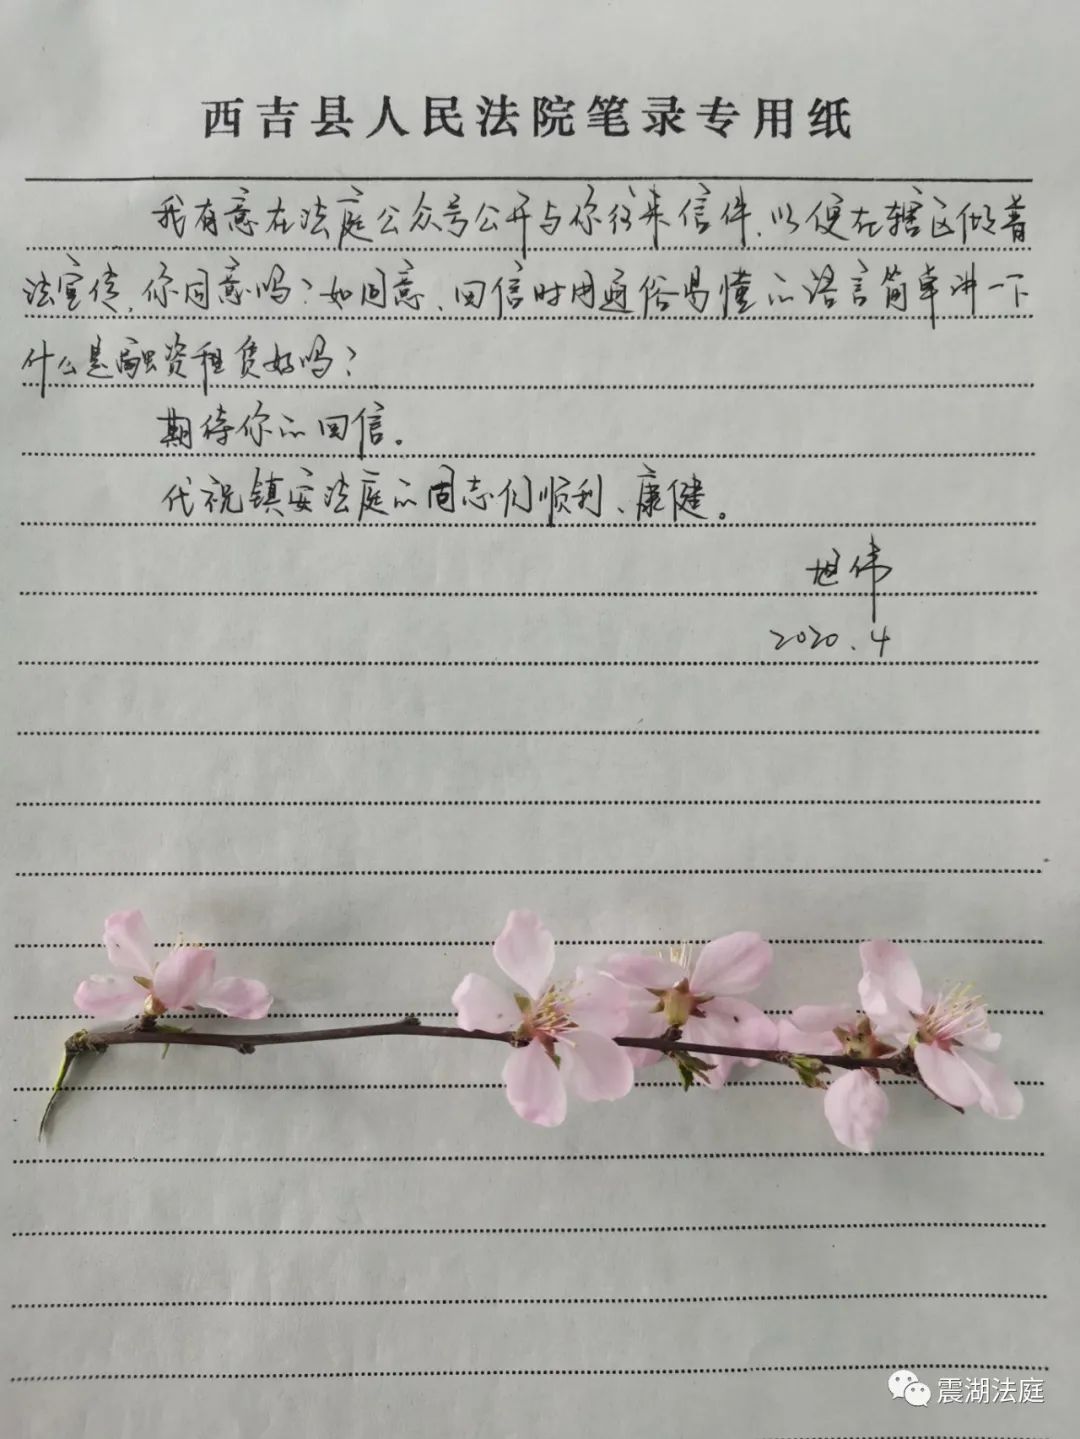 西吉县人民法院笔录专用纸
我有意在法庭公众号公开与你往来信件、以便在辖区做普
法宣传,你同意吗?如同意、回信时用通俗易懂的语言简单讲一下
什么是融资租赁好吗?
期待你的回信。
代祝镇安法庭的同志们顺利、康健。
伟
2020.4
震湖法庭